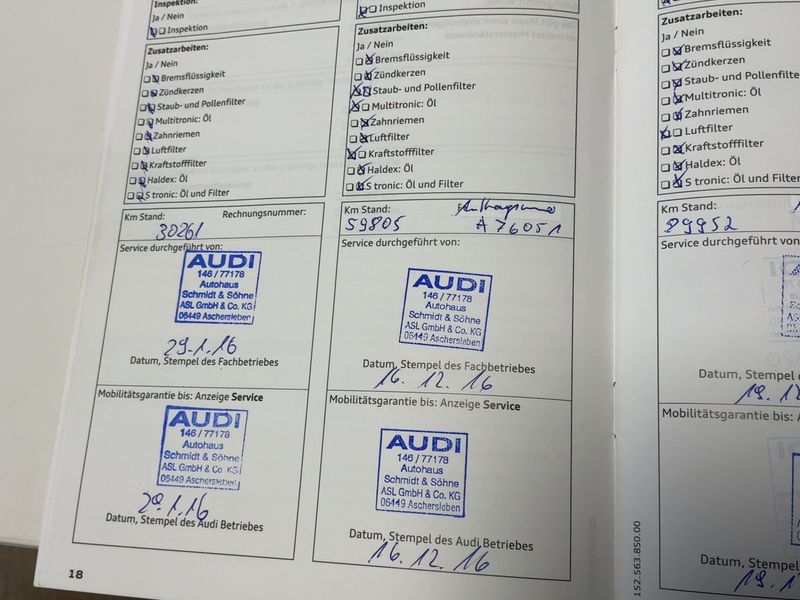 Inspektion:
Ja / Nein
Inspektion
Zusatzarbeiten:
Ja / Nein
Bremsflüssigkeit
Zündkerzen
Staub- und Pollenfilter
Multitronic: Öl
Zahnriemen
Luftfilter
Kraftstofffilter
Haldex: Öl
S tronic: Öl und Filter
Km Stand: Rechnungsnummer:
30261
Service durchgeführt von:
AUDI
146 / 77178
Autohaus
Schmidt & Söhne
ASL GmbH & Co. KG
06449 Aschersleben
29.1.16
Datum, Stempel des Fachbetriebes
Mobilitätsgarantie bis: Anzeige Service
AUDI
146 / 77178
Autohaus
Schmidt & Söhne
ASL GmbH & Co. KG
06449 Aschersleben
29.1.16
Datum, Stempel des Audi Betriebes
18
Inspektion
Zusatzarbeiten:
Ja / Nein
Bremsflüssigkeit
Zündkerzen
Staub- und Pollenfilter
Multitronic: Öl
Zahnriemen
Luftfilter
Kraftstofffilter
Haldex: Öl
S tronic: Öl und Filter
Km Stand:
59805 A76051
Service durchgeführt von:
AUDI
146 / 77178
Autohaus
Schmidt & Söhne
ASL GmbH & Co. KG
06449 Aschersleben
Datum, Stempel des Fachbetriebes
16.12.16
Mobilitätsgarantie bis: Anzeige Service
AUDI
146 / 77178
Autohaus
Schmidt & Söhne
ASL GmbH & Co. KG
06449 Aschersleben
Datum, Stempel des Audi Betriebes
16.12.16
152.563.850.00
Zusatzarbeiten:
Ja / Nein
Bremsflüssigkeit
Zündkerzen
Staub- und Pollenfilte
Multitronic: Öl
Zahnriemen
Luftfilter
Kraftstofffilter
Haldex: Öl
S tronic: Öl und Filte
Km Stand:
89952
Service durchgeführt von
Datum, Stempel d
19.1
Mobilitätsgarantie bis: A
Datum, Stempel
19.1